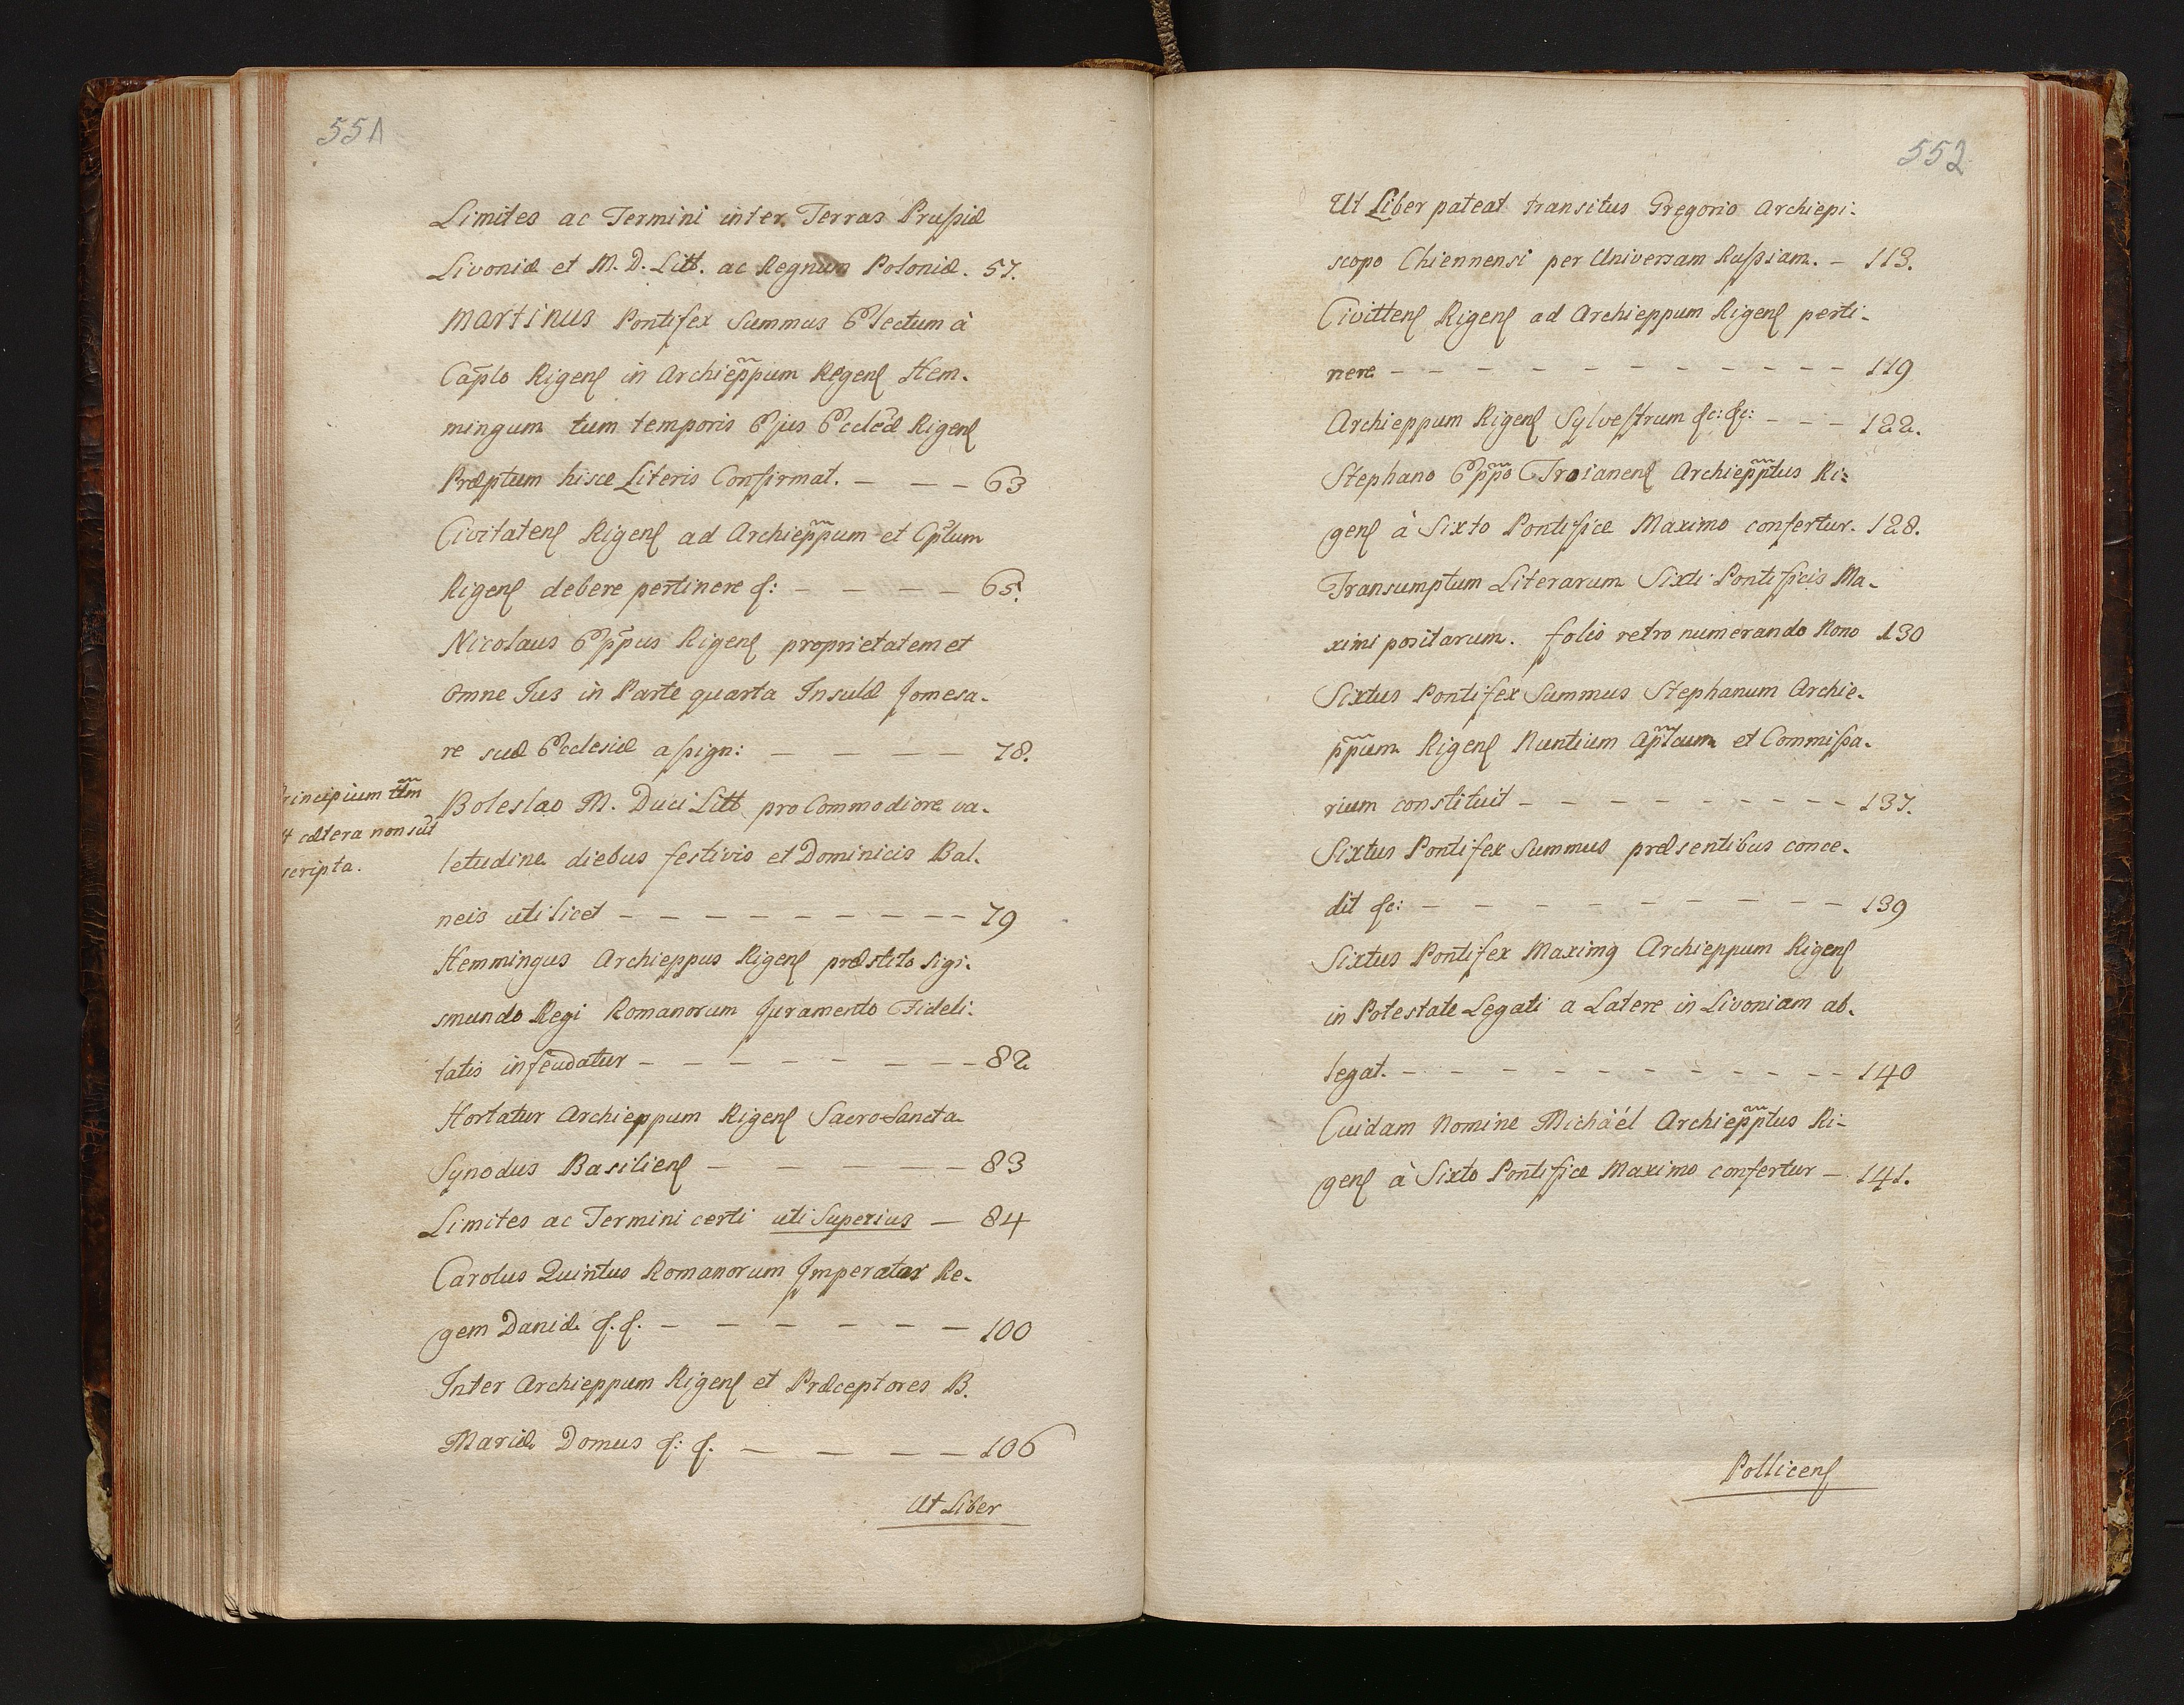 551
Limites ac Termini inter Terras Prussiæ
Livoniæ et M. D. Litt. ac Regnum Poloniæ. 57.
Martinus Pontifex Summus Electum à
Cap̃lo Rigenſ in Archiep̃pum Rigenſ Hem-
mingum tum temporis Ejus Eccleæ Rigenſ
Præptum hisce Literis Confirmat. - - - 63
Civitatenſ Rigenſ ad Archiep̃pum et Cp̃lum
Rigenſ debere pertinere &: - - - - 65.
Nicolaus Ep̃pus Rigenſ proprietatem et
omne Jus in Parte quarta Insulæ Jomesa-
re suæ Ecclesiæ assign: - - - - 78.
Principium tm̃
& cætera non sũt
scripta.
Boleslao M. Duci Litt pro Commodiore va-
letudine diebus festivis et Dominicis Bal-
neis uti licet - - - - - - - - - - 79
Hemmingus Archieppus Rigenſ præstito Sigi-
smundo Regi Romanorum Juramento Fideli-
tatis infeudatur - - - - - - - - 82
Hortatur Archieppum Rigenſ Sacro-Sancta
Synodus Basilienſ - - - - - 83
Limites ac Termini certi uti Superius - 84
Carolus Quintus Romanorum Imperator Re-
gem Daniæ &. &. - - - - - - 100
Inter Archieppum Rigenſ et Præceptores B.
Mariæ Domus &: &. - - - - 106
Ut Liber
552
Ut Liber pateat transitus Gregorio Archiepi-
scopo Chiennensi per Universam Russiam. - 113.
Civittenſ Rigenſ ad Archieppum Rigenſ perti-
nere - - - - - - - - - - - 119
Archieppum Rigenſ Sylvestrum &c: &c: - - - 122.
Stephano Ep̃po Troianenſ Archiep̃ptus Ri-
genſ à Sixto Pontifice Maximo confertur. 128.
Transumptum Literarum Sixti Pontificis Ma-
ximi positarum. folio retro numerando Nono 130
Sixtus Pontifex Summus Stephanum Archie-
p̃pum Rigenſ Nuntium Ap̃lcum et Commissa-
rium constituit - - - - - - - - - 137.
Sixtus Pontifex Summus præsentibus conce-
dit &c: - - - - - - - - - 139
Sixtus Pontifex Maximꝯ Archieppum Rigenſ
in Potestate Legati a Latere in Livoniam ab-
legat. - - - - - - - - - - 140
Cuidam Nomine Michäél Archiep̃ptus Ri-
genſ à Sixto Pontifice Maximo confertur - 141.
Pollicenſ